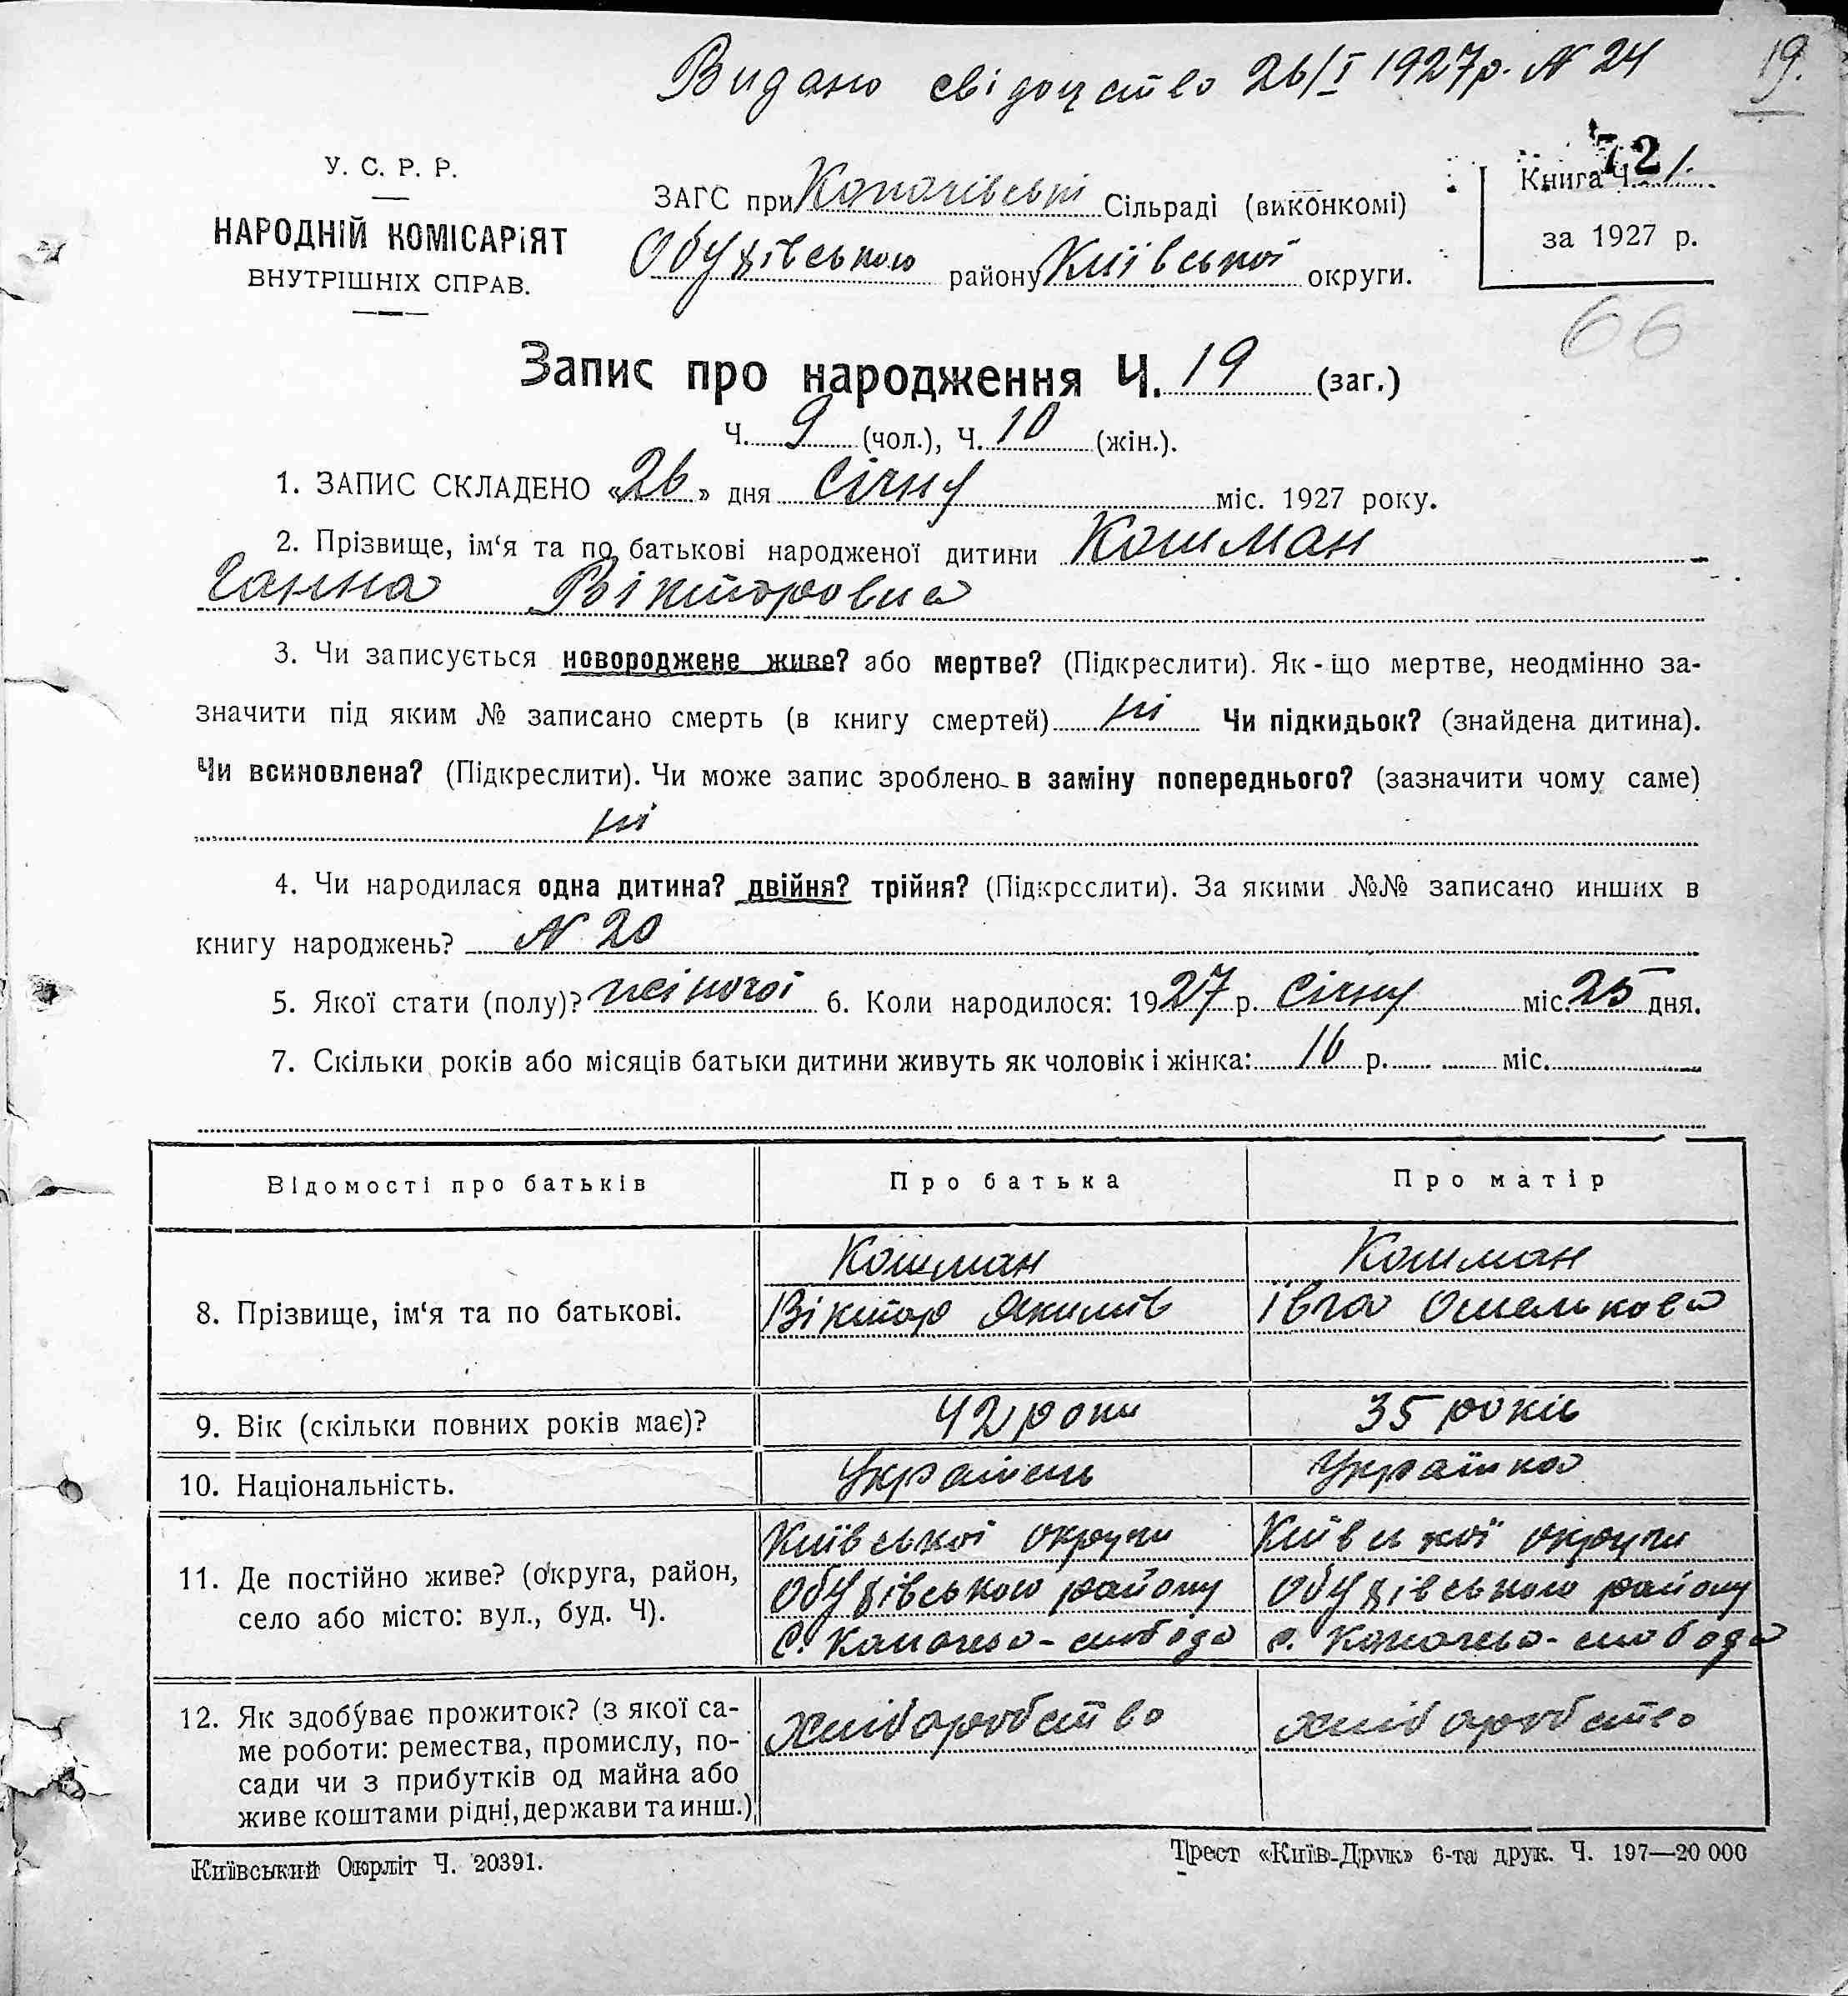 Видано свідоцтво 26/I 1927р. N 24
19.
У. С. Р. Р.
НАРОДНІЙ КОМІСАРІЯТ
ВНУТРІШНІХ СПРАВ.
ЗАГС при Копачівські Сільраді (виконкомі)
Обухівського району Київської округи.
72
Книга Ч. 1.
за 1927 р.
66
Запис про народження Ч. 19 (заг.)
Ч. 9 (чол.), Ч. 10 (жін.).
1. ЗАПИС СКЛАДЕНО «26» дня січну міс. 1927 року.
2. Прізвище, ім‘я та по батькові народженої дитини Кошман
Ганна Вікторовна
3. Чи записується новороджене живе? або мертве? (Підкреслити). Як-що мертве, неодмінно за-
значити під яким № записано смерть (в книгу смертей) ні Чи підкидьок? (знайдена дитина).
Чи всиновлена? (Підкреслити). Чи може запис зроблено в заміну попереднього? (зазначити чому саме)
ні
4. Чи народилася одна дитина? двійня? трійня? (Підкреслити). За якими №№ записано инших в
книгу народжень? N 20
5. Якої стати (полу)? жіночої 6. Коли народилося: 1927 р. Січну міс. 25 дня.
7. Скільки років або місяців батьки дитини живуть як чоловік і жінка: 16 р. міс.
Відомості про батьків Про батька Про матір
Кошман Кошман
8. Прізвище, ім‘я та по батькові. Віктор Якимів Івга Омелькова
9. Вік (скільки повних років має)? 42 роки 35 років
10. Національність. Українець Українка
Київської округи Київської округи
11. Де постійно живе? (округа, район, Обухівського району Обухівського району
село або місто: вул., буд. Ч). с. Копачево-слобода с. Копачево-слобода
12. Як здобуває прожиток? (з якої са- хліборобство хліборобство
ме роботи: ремества, промислу, по-
сади чи з прибутків од майна або
живе коштами рідні, держави та инш.)
Київський Окрліт Ч. 20391. Трест «Київ-Друк» 6-та друк. Ч. 197—20 000